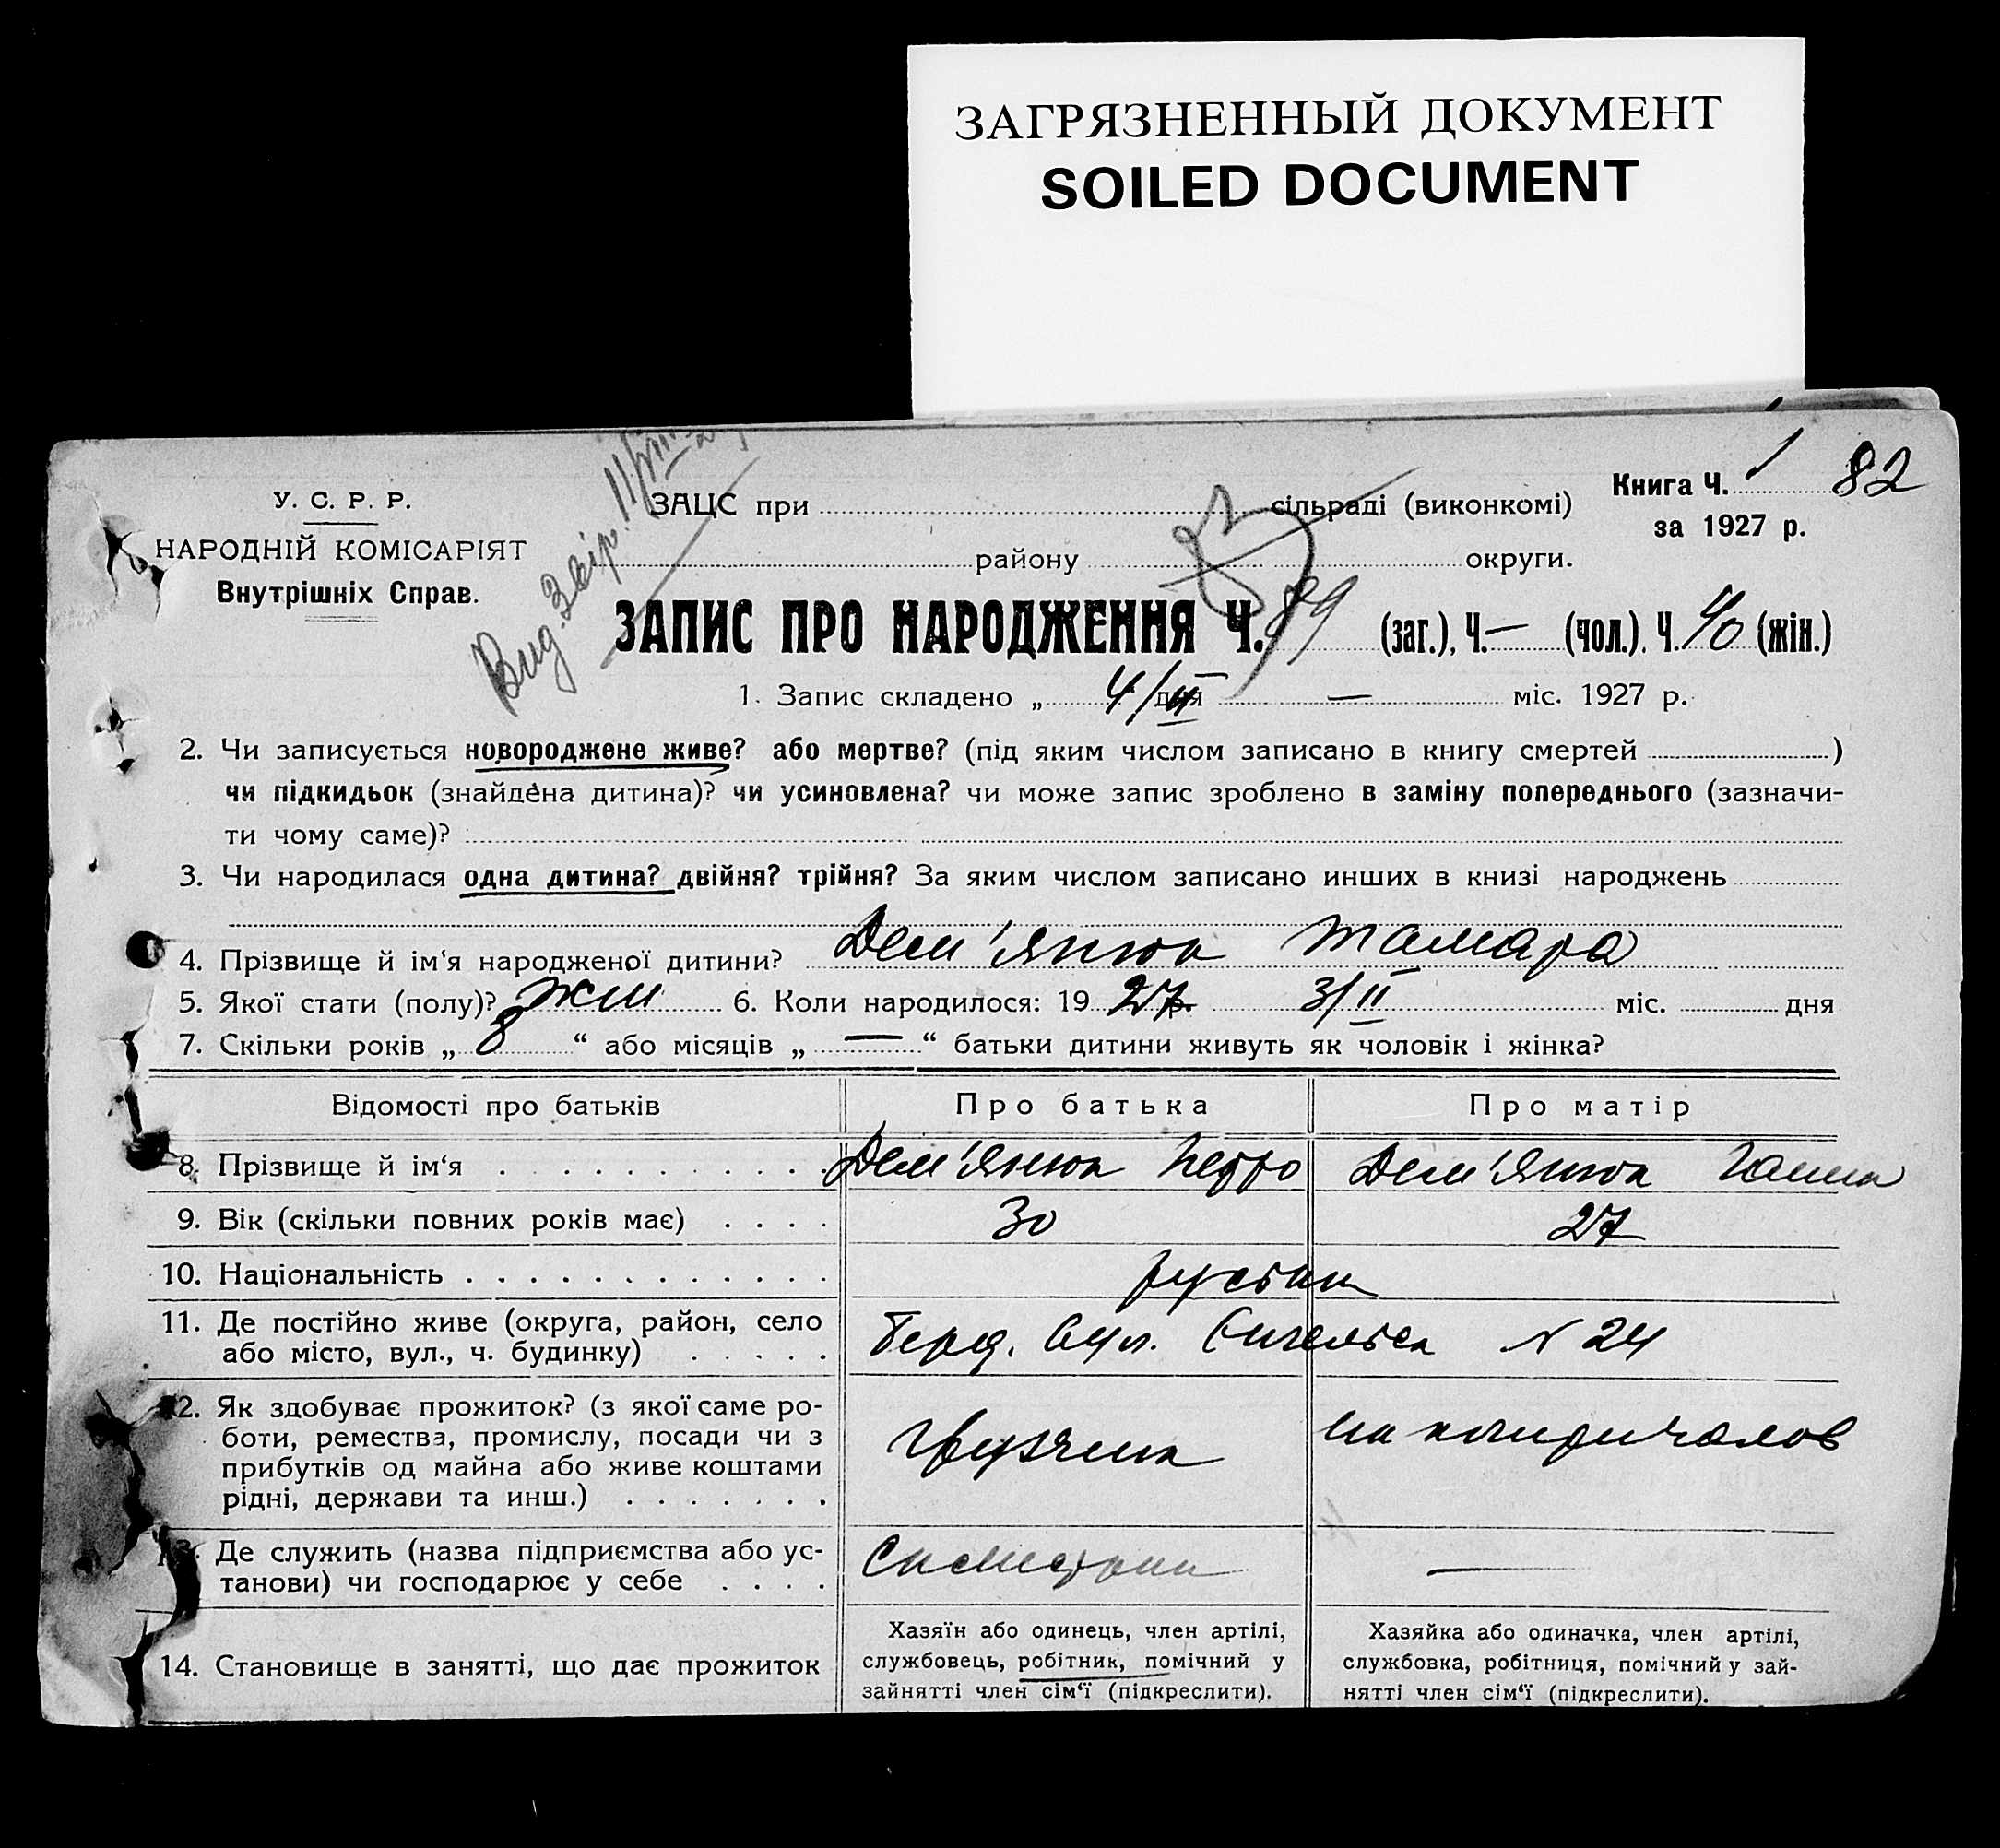 ЗАГРЯЗНЕННЫЙ ДОКУМЕНТ
SOILED DOCUMENT
Книга Ч. 1 82
за 1927 р.
У. С. Р. Р.
НАРОДНІЙ КОМІСАРІЯТ
Внутрішніх Справ.
Вид. Звір. 11/VIII
ЗАЦС при сільраді (виконкомі)
району округи.
ЗАПИС ПРО НАРОДЖЕННЯ Ч. 89 (заг.), Ч. — (чол.). Ч. 40 (жін.)
1. Запис складено „ 4/II дня — міс. 1927 р.
2. Чи записується новороджене живе? або мертве? (під яким числом записано в книгу смертей )
чи підкидьок (знайдена дитина)? чи усиновлена? чи може запис зроблено в заміну попереднього (зазначи-
ти чому саме)?
3. Чи народилася одна дитина? двійня? трійня? За яким числом записано инших в книзі народжень
4. Прізвище й ім‘я народженої дитини? Дем'янюк Тамара
5. Якої стати (полу)? жін 6. Коли народилося: 19 27 р. 3/II міс. дня
7. Скільки років „ 8 “ або місяців „ — “ батьки дитини живуть як чоловік і жінка?
Відомості про батьків Про батька Про матір
8. Прізвище й ім‘я Дем'янюк Петро Дем'янюк Ганна
9. Вік (скільки повних років має) 30 27
10. Національність
11. Де постійно живе (округа, район, село
або місто, вул., ч. будинку)
Берд. вул. Енгельса N 24
12. Як здобуває прожиток? (з якої саме ро-
боти, ремества, промислу, посади чи з
прибутків од майна або живе коштами
рідні, держави та инш.)
грузчик
13. Де служить (назва підприємства або ус-
танови) чи господарює у себе
—
14. Становище в занятті, що дає прожиток
Хазяїн або одинець, член артілі,
службовець, робітник, помічний у
зайнятті член сім‘ї (підкреслити).
Хазяйка або одиначка, член артілі,
службовка, робітниця, помічний у зай-
нятті член сім‘ї (підкреслити).